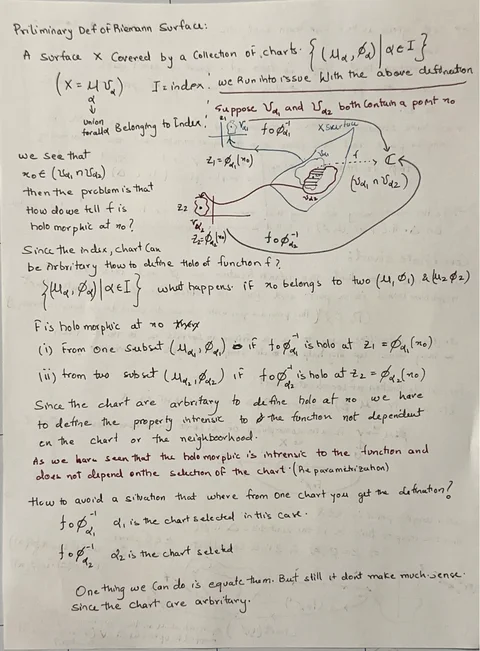 Priliminary Def of Riemann Surface:
A Surface X Covered by a Collection of charts. {(μα, φα) | α ∈ I}
(X = ∪ Uα) I = index. we Run into issue With the above defination
α
↓
union
for all α Belonging to Index.
Suppose Uα1 and Uα2 both Contain a point x0
z1
Vα1
f o φα1^-1
X, Surface
z1 = φα1(x0)
Uα1
f
ℂ
(Uα1 ∩ Uα2)
Uα2
we see that
x0 ∈ (Uα1 ∩ Uα2)
then the problem is that
How do we tell f is
holomorphic at x0?
z2
Vα2
z2 = φα2(x0)
f o φα2^-1
Since the index, chart Can
be Arbritary How to define Holo of function f?
{(μα, φα) | α ∈ I} what happens if x0 belongs to two (μ1 φ1) & (μ2 φ2)
F is holomorphic at x0
(i) From one Subset (μα1, φα1) if f o φα1^-1 is holo at z1 = φα1(x0)
(ii) from two subset (μα2, φα2) if f o φα2^-1 is holo at z2 = φα2(x0)
Since the chart are arbritary to define holo at x0, we have
to define the property intrinsic to the function not dependent
on the chart or the neighbourhood.
As we have seen that the holomorphic is intrensic to the function and
does not depend on the selection of the chart. (Re parametrization)
How to avoid a situation that where from one chart you get the defination?
f o φα1^-1 α1 is the chart selected in this case.
f o φα2^-1 α2 is the chart seleted
One thing we can do is equate them. But still it dont make much sense.
Since the chart are arbritary.